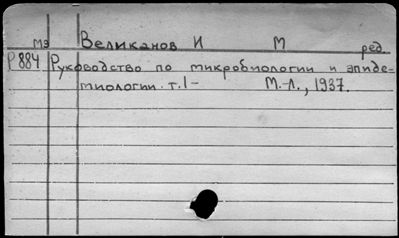 мэ Великанов И М ред
Р884 Руководство по микробиологии и эпиде-
миологии. т.1- М.-Л., 1937.